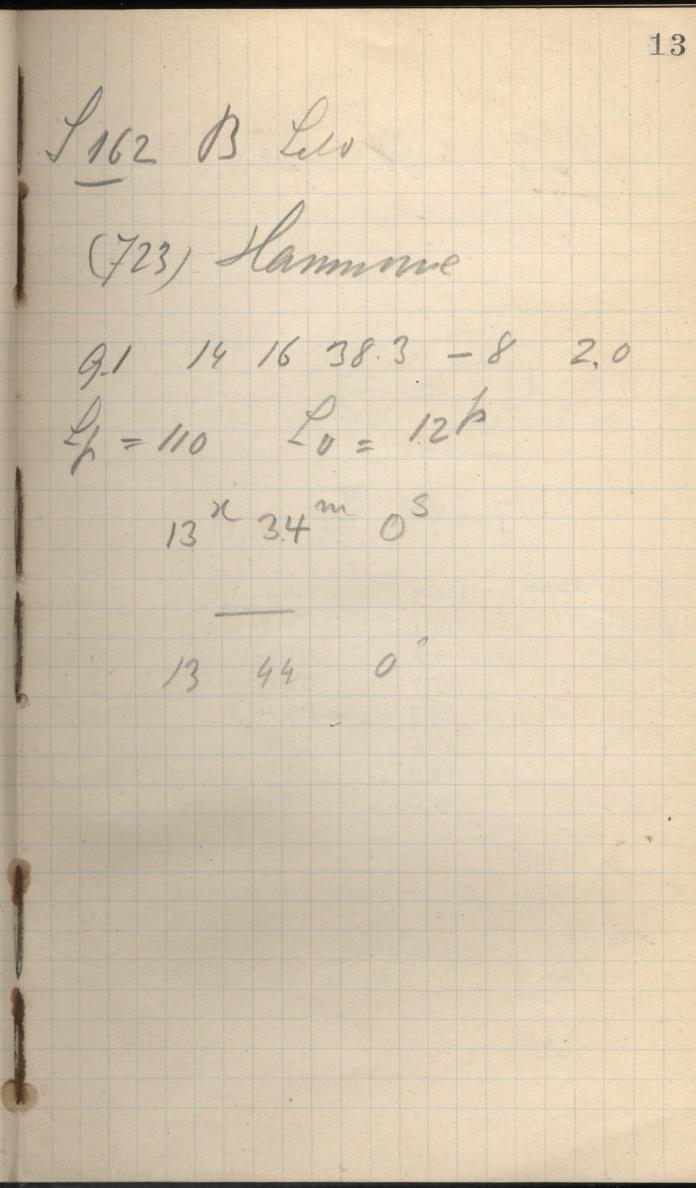 13
S 162 B
(723) Hammonie
9.1 14 16 38.3 – 8 2.0
Lp = 110 Lo = 12p
13h 34m 0s
13 44 0